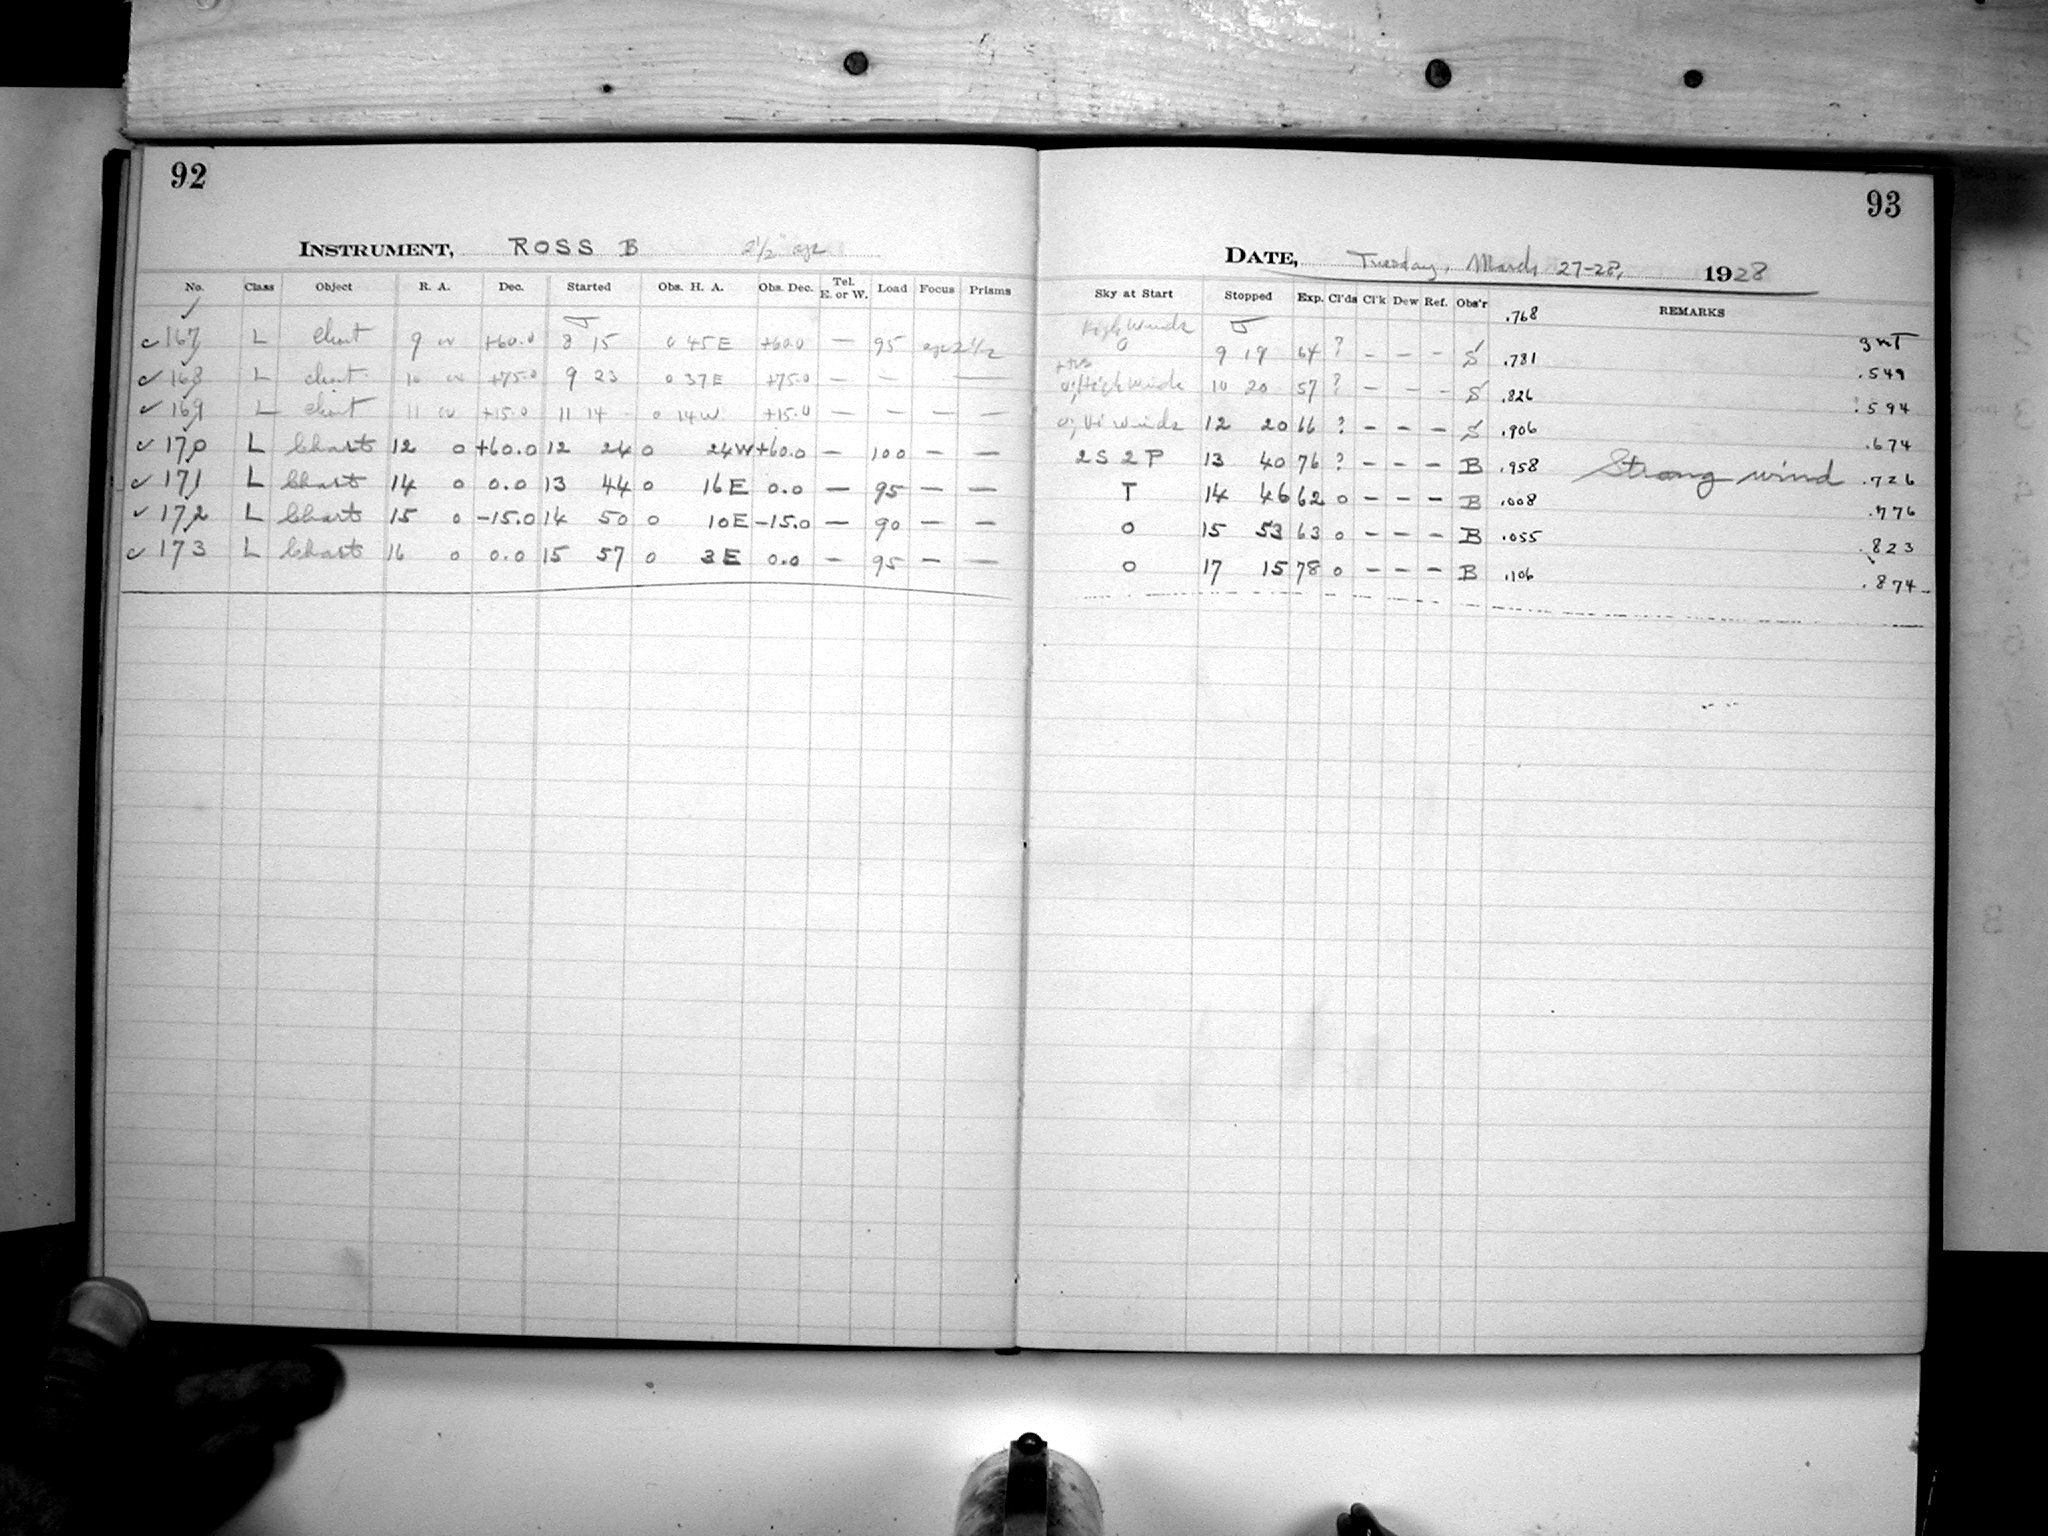 92
INSTRUMENT, ROSS B 2 1/2
No. Class Object R. A. Dec. Started Obs. H. A. Obs. Dec. Tel. E. or W. Load Focus Prisms
✓ 167 L chart 9 00 +60.0 8 15 0 45 E +60.0 — 95 2 1/2
✓ 168 L chart 10 00 +75.0 9 23 0 37 E +75.0 — — —
✓ 169 L chart 11 00 +15.0 11 14 0 14 W +15.0 — — — —
✓ 170 L Chart 12 0 +60.0 12 24 0 24 W +60.0 — 100 — —
✓ 171 L Chart 14 0 0.0 13 44 0 16 E 0.0 — 95 — —
✓ 172 L Chart 15 0 -15.0 14 50 0 10 E -15.0 — 90 — —
✓ 173 L Chart 16 0 0.0 15 57 0 3 E 0.0 — 95 — —
93
DATE, Tuesday, March 27-28, 1928
Sky at Start Stopped Exp. Cl'ds Cl'k Dew Ref. Obs'r REMARKS
.768
High Winds 0 9 19 64 ? — — — S .781 GMT
0, High Winds 10 20 57 ? — — — S .826 .549
0, Hi Winds 12 20 66 ? — — — S .906 .594
2 S 2 P 13 40 76 ? — — — B .958 Strong wind .674
T 14 46 62 0 — — — B .008 .726
0 15 53 63 0 — — — B .055 .776
0 17 15 78 0 — — — B .106 .823
.874